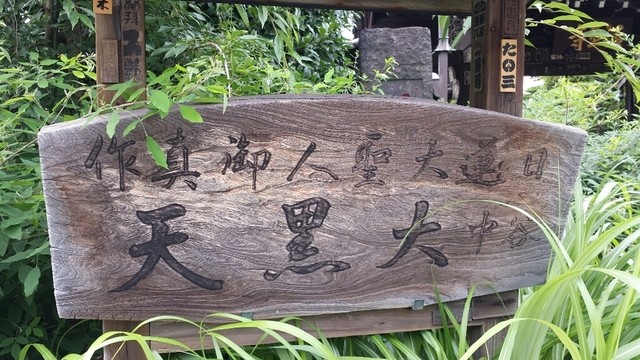 日蓮大聖人御真作
谷中大黒天